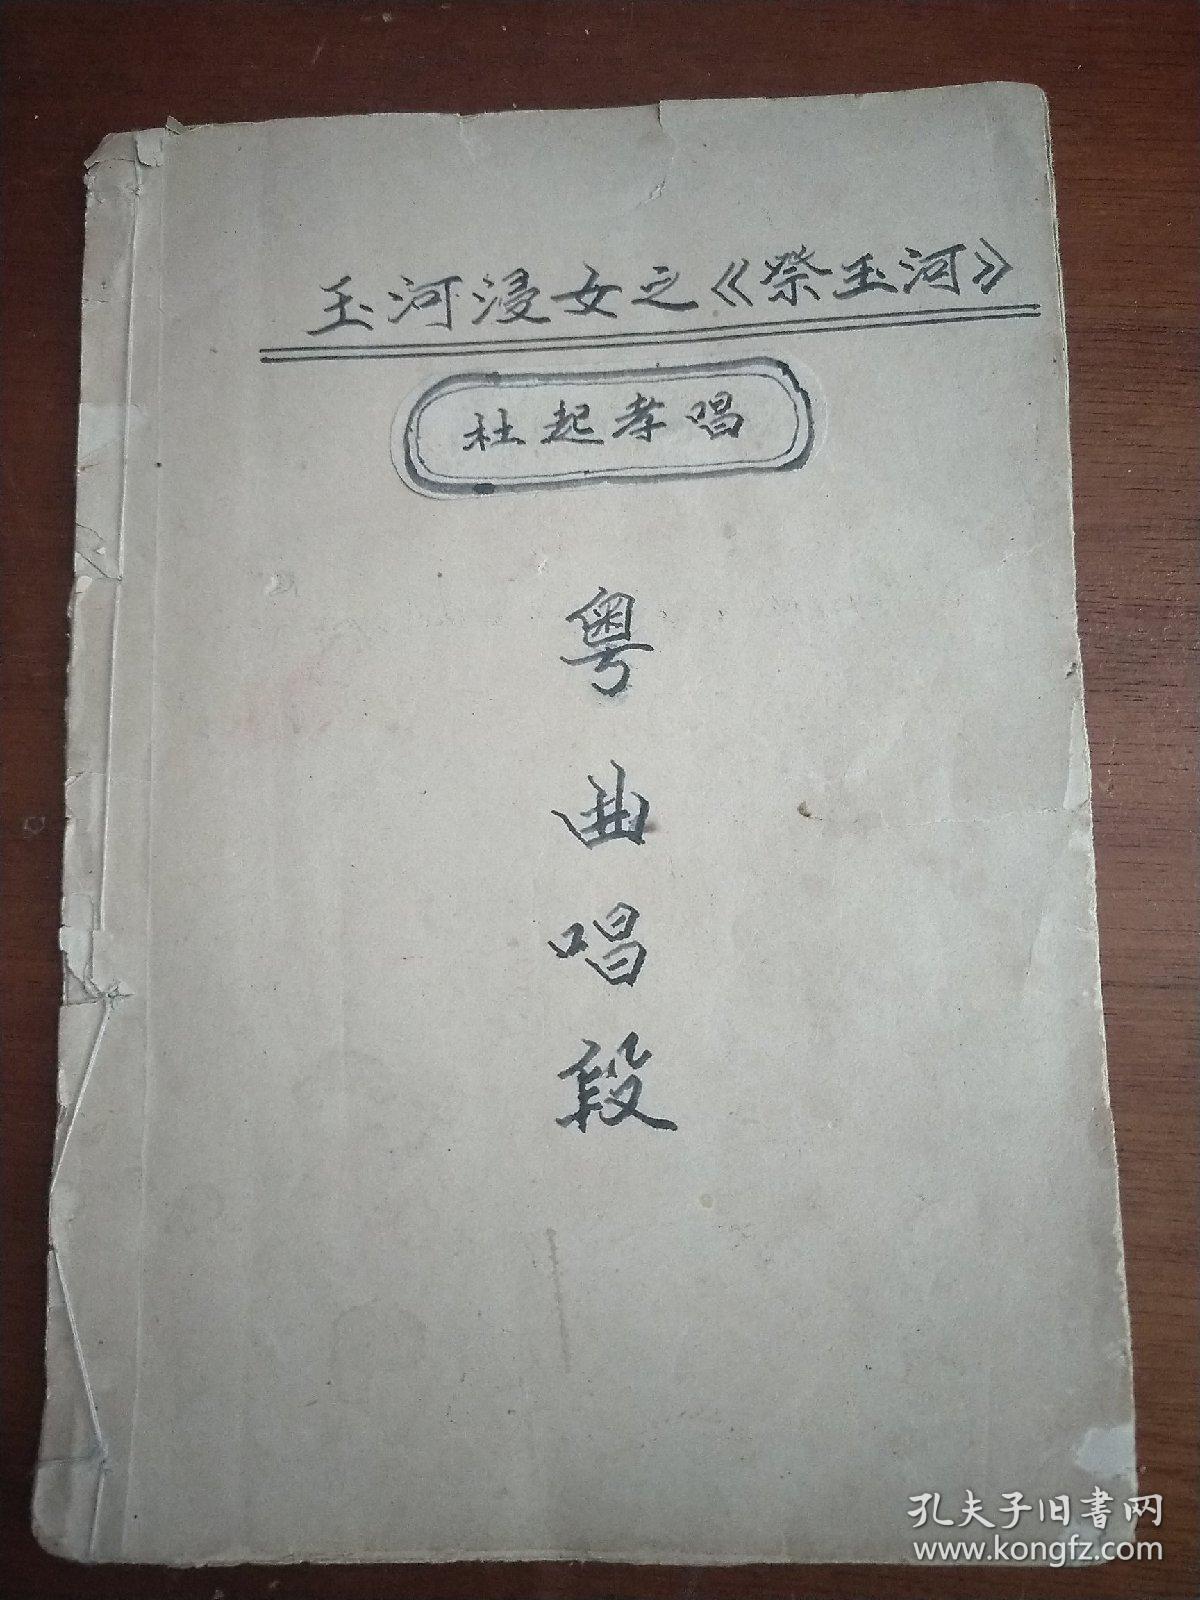 玉河浸女之《祭玉河》
杜起孝唱
粤曲唱段
孔夫子旧书网
www.kongfz.com